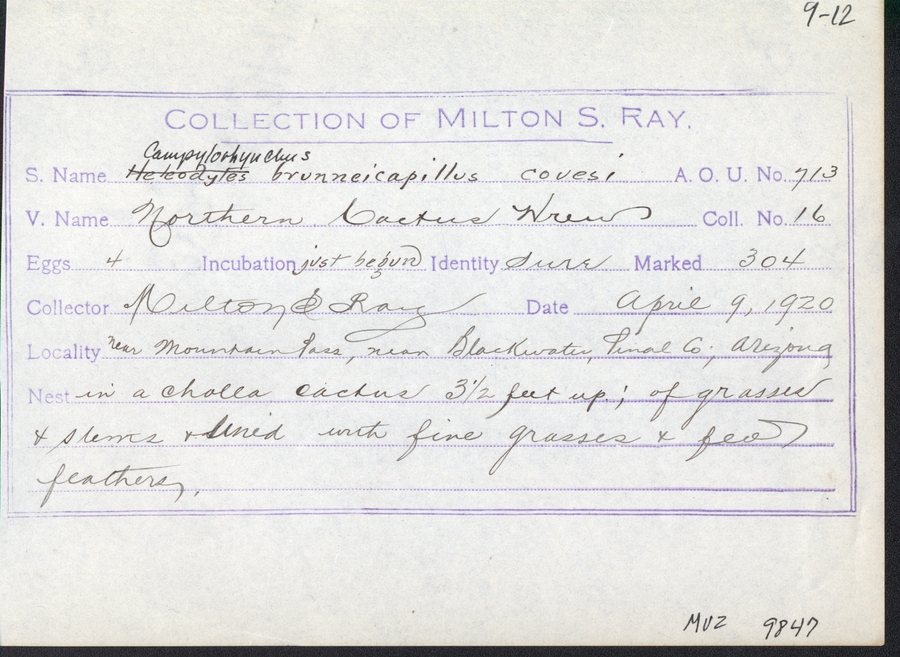 9-12
COLLECTION OF MILTON S. RAY.
Campylorhynchus
S. Name Heleodytes brunneicapillus couesi A. O. U. No. 713
V. Name Northern Cactus Wren Coll. No. 16
Eggs 4 Incubation just begun Identity Sure Marked 304
Collector Milton S Ray Date April 9, 1920
Locality near Mountain Pass, near Blackwater, Pinal Co., Arizona
Nest in a cholla cactus 3 1/2 feet up; of grasses
& stems & lined with fine grasses & few
feathers.
MVZ 9847